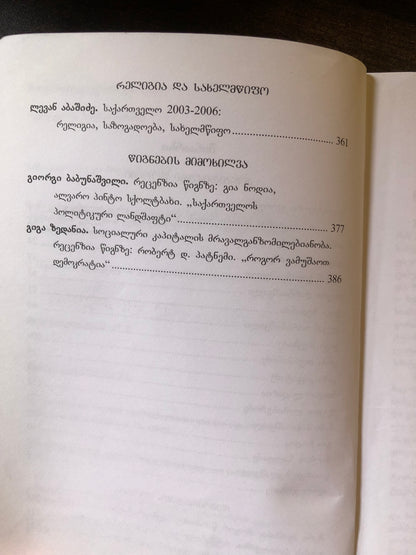 რელიგია და სახელმწიფო
ლევან აბაშიძე. საქართველო 2003-2006:
რელიგია, საზოგადოება, სახელმწიფო.............................. 361
წიგნების მიმოხილვა
გიორგი ბაბუნაშვილი. რეცენზია წიგნზე: გია ნოდია,
ალვარო პინტო სქოლტბახი. „საქართველოს
პოლიტიკური ლანდშაფტი“.............................................. 377
გიგა ზედანია. სოციალური კაპიტალის მრავალგანზომილებიანობა.
რეცენზია წიგნზე: რობერტ დ. პატნემი. „როგორ ვამუშაოთ
დემოკრატია“................................................................ 386